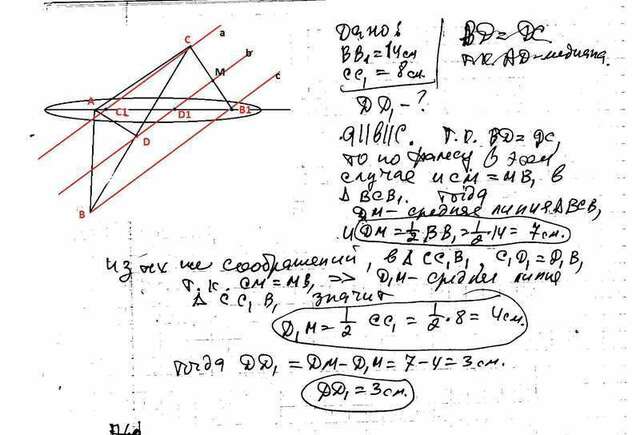 C
a
b
M
c
A
C1
D1
B1
D
B
Дано:
BB₁=14см
CC₁=8см.
DD₁-?
BD=DC
т.к. AD-медиана.
a||b||c. Т.к. BD=DC,
то по Фалесу в этом
случае и CM=MB₁ в
ΔBCB₁. Тогда
DM-средняя линия ΔBCB₁
и DM=½BB₁=½·14=7см.
Из тех же соображений, в ΔCC₁B₁, C₁D₁=D₁B₁
т.к. CM=MB₁ => D₁M-средняя линия
ΔCC₁B₁ значит
D₁M=½CC₁=½·8=4см.
Тогда DD₁=DM-D₁M=7-4=3см.
DD₁=3см.